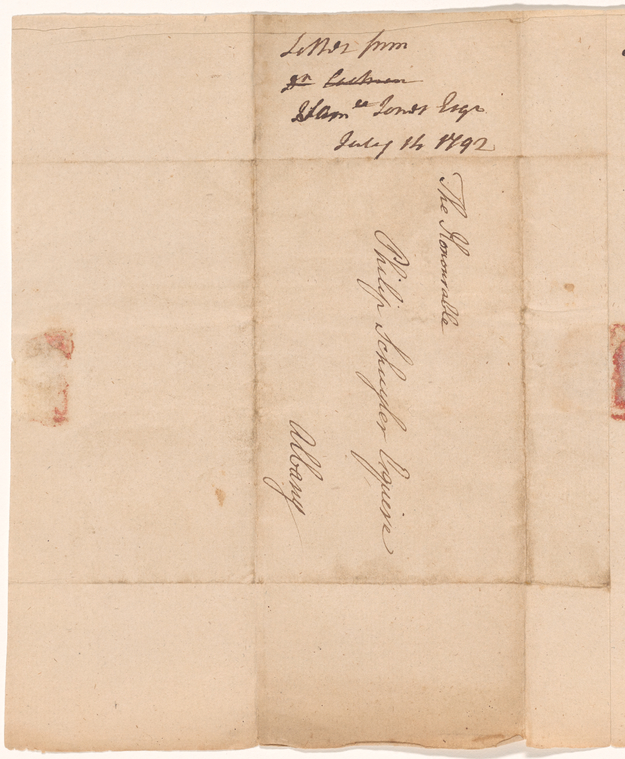 Letter from
Dr Cochran
Sam^ll Jones Esqr
July 14 1792
The Honourable
Philip Schuyler Esquire
Albany